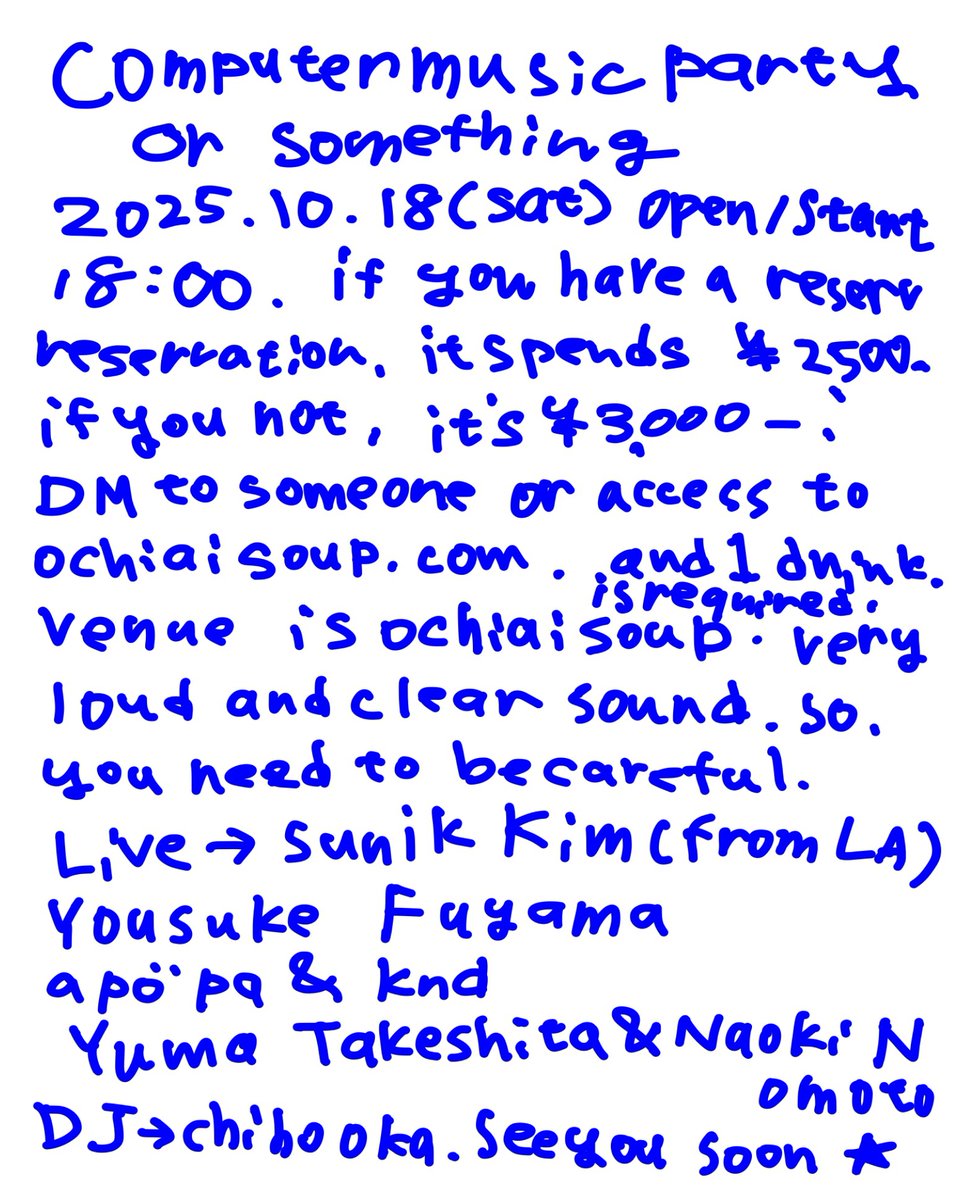 Computer music party
or something
2025.10.18(sat) open/start
18:00. if you have a reserv
reservation, it spends ¥2500-
if you not, it's ¥3,000-.
DM to someone or access to
ochiaisoup.com. and 1 drink.
is required.
venue is ochiaisoup. very
loud and clear sound. so.
you need to becareful.
Live→ Sunik Kim (from LA)
Yousuke Fuyama
apö̈pa & knd
Yuma Takeshita & Naoki N
omoto
DJ→chihooka. See you soon ★